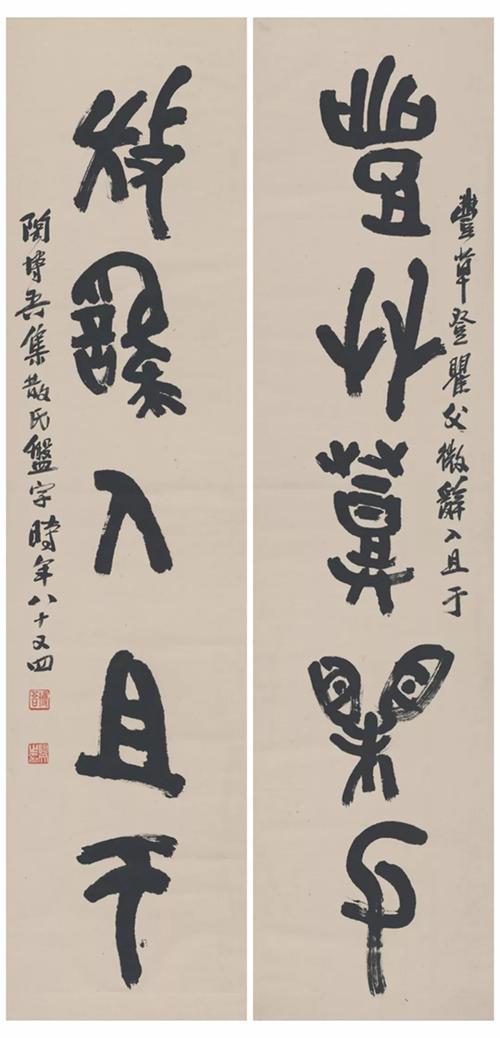 豐草登瞿父微辭入且于
豐草登瞿父
微辭入且于
陶博吾集散氏盤字時年八十又四